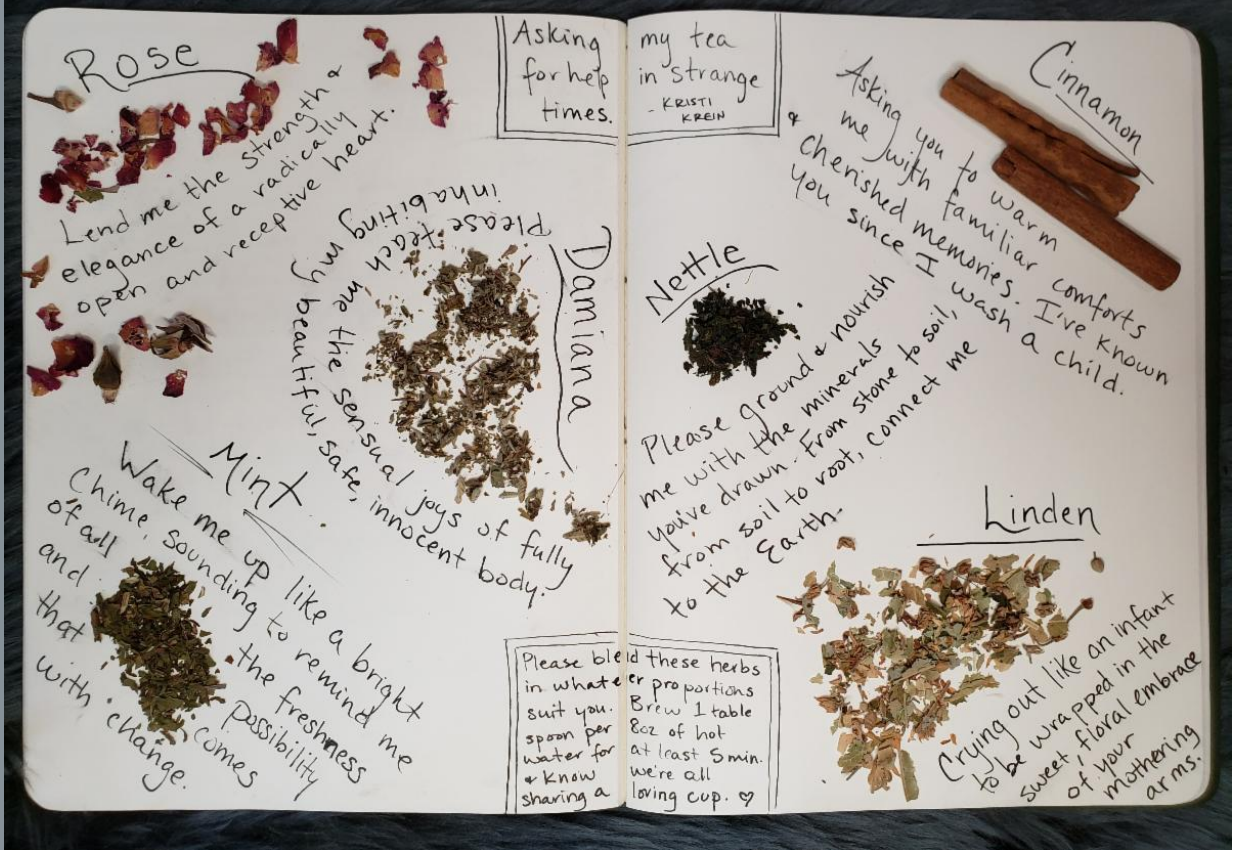 Asking my tea
for help in strange
times. - KRISTI
KREIN
Rose
Lend me the strength &
elegance of a radically
open and receptive heart.
Damiana
Please teach me the sensual joys of fully
inhabiting my beautiful, safe, innocent body.
Mint
Wake me up like a bright
Chime, sounding to remind me
of all the freshness
and possibility
that comes
with change.
Cinnamon
Asking you to warm
me with familiar comforts
& cherished memories. I've known
you since I wash a child.
Nettle
Please ground & nourish
me with the minerals
you've drawn. From stone to soil,
from soil to root, connect me
to the Earth.
Linden
Crying out like an infant
to be wrapped in the
sweet, floral embrace
of your
mothering
arms.
Please blend these herbs
in whatever proportions
suit you. Brew 1 table
spoon per 8oz of hot
water for at least 5 min.
& know we're all
sharing a loving cup. ♡